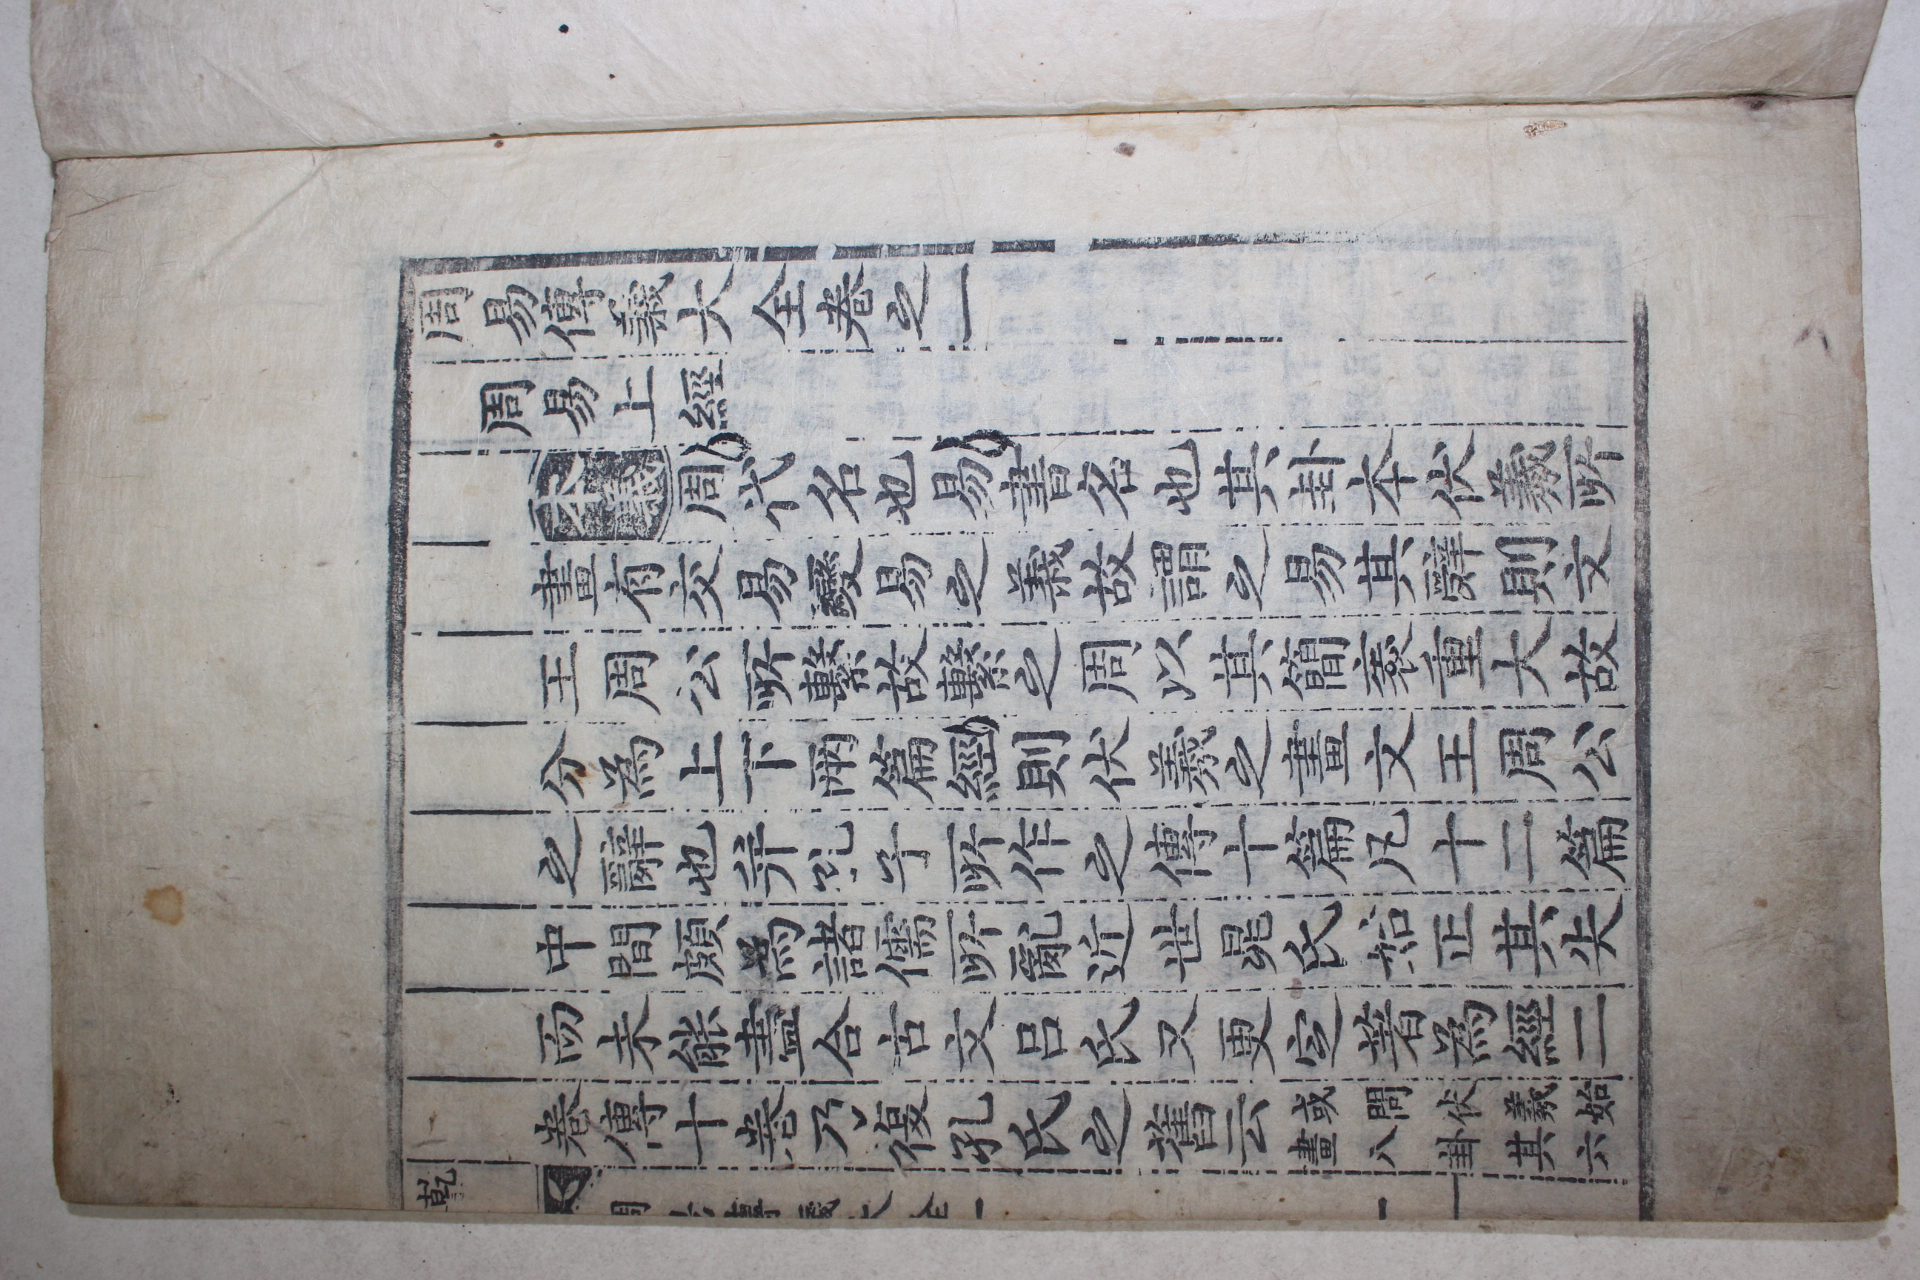 周易傳義大全卷之一
周易上經
本義周代名也易書名也其卦本伏羲所
畫有交易變易之義故謂之易其辭則文
王周公所繫故繫之周以其簡袠重大故
分為上下兩篇經則伏羲之畫文王周公
之辭也并孔子所作之傳十篇凡十二篇
中間頗為諸儒所亂近世晁氏始正其失
而未能盡合古文呂氏又更定著為經二
卷傳十卷乃復孔氏之舊云
或問伏羲始
畫八卦其六
乾
周易傳義大全一 一